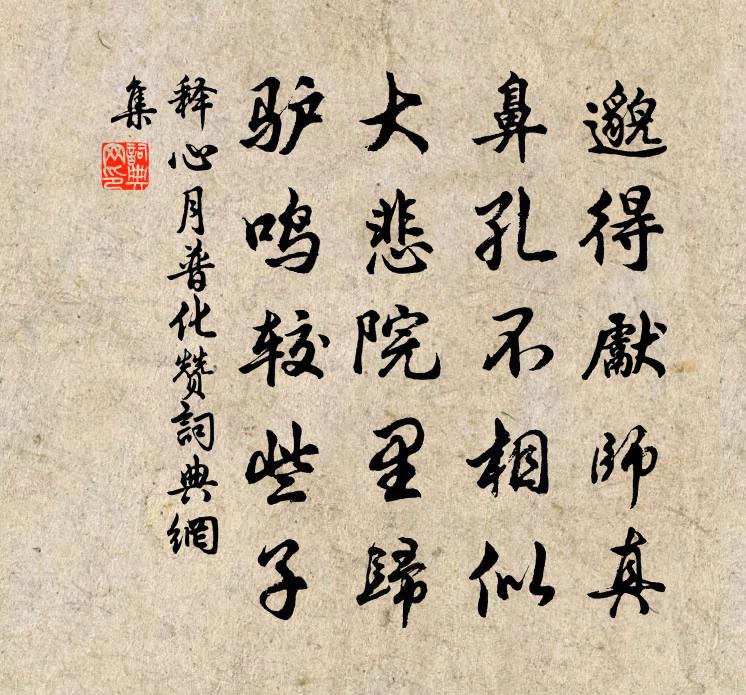 邈得獻師真
鼻孔不相似
大悲院里歸
驴鸣较些子
释心月普化赞詞典網
集
詞典
网印